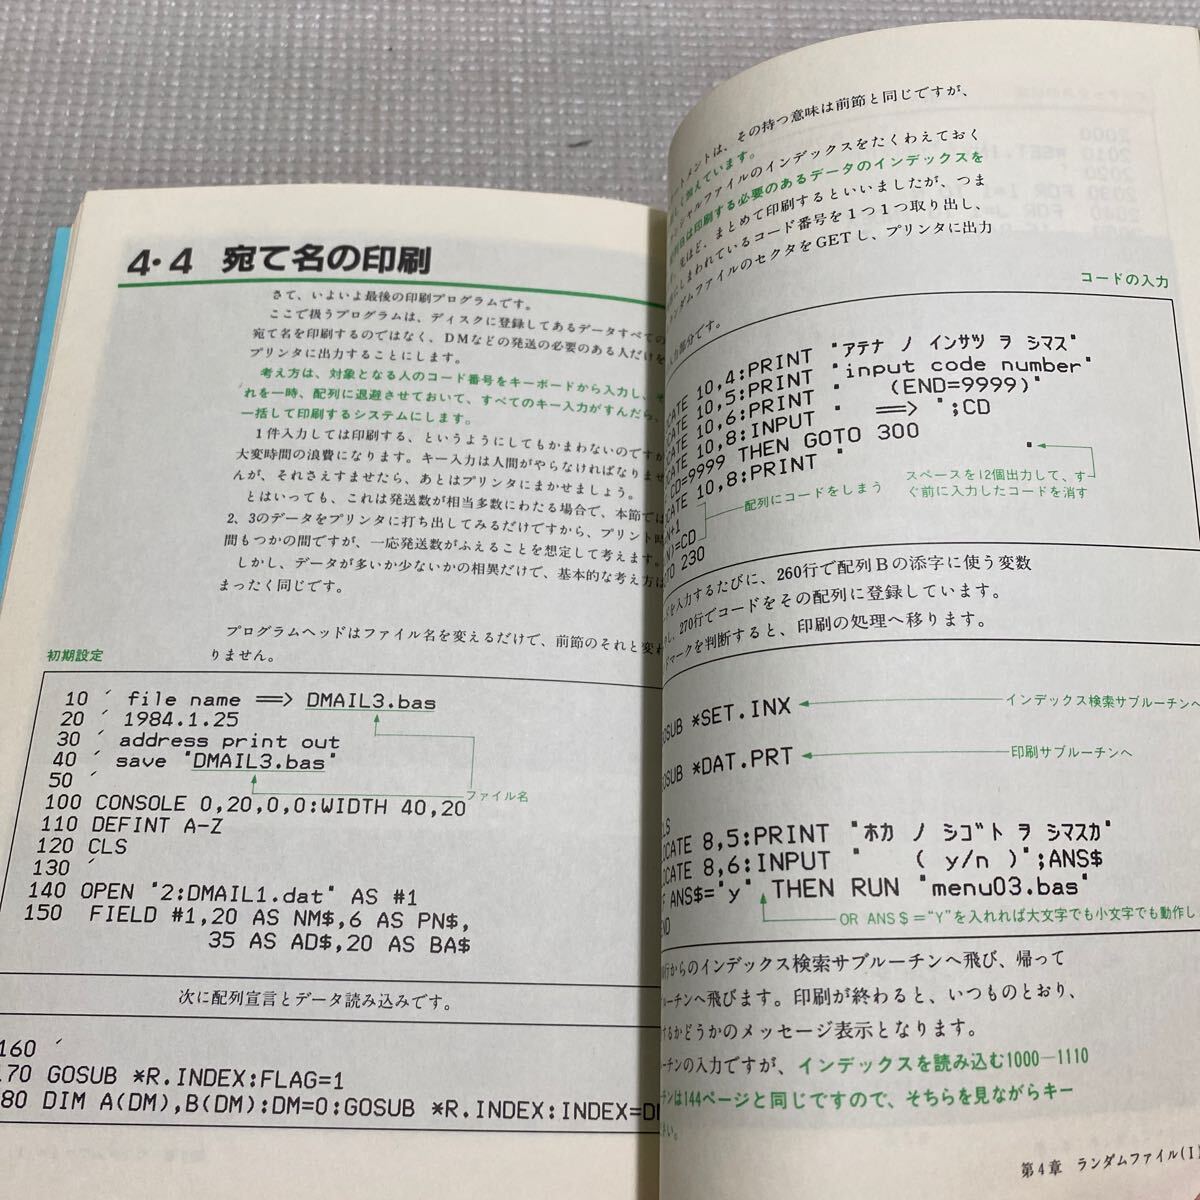 4・4 宛て名の印刷
さて、いよいよ最後の印刷プログラムです。
ここで扱うプログラムは、ディスクに登録してあるデータすべての
宛て名を印刷するのではなく、DMなどの発送の必要のある人だけを
プリンタに出力することにします。
考え方は、対象となる人のコード番号をキーボードから入力し、そ
れを一時、配列に退避させておいて、すべてのキー入力がすんだら、
一括して印刷するシステムにします。
1件入力しては印刷する、というようにしてもかまわないのですが
大変時間の浪費になります。キー入力は人間がやらなければなりませ
んが、それさえすませたら、あとはプリンタにまかせましょう。
とはいっても、これは発送数が相当多数にわたる場合で、本節では
2、3のデータをプリンタに打ち出してみるだけですから、プリント時
間もつかの間ですが、一応発送数がふえることを想定して考えます。
しかし、データが多いか少ないかの相異だけで、基本的な考え方は
まったく同じです。
プログラムヘッドはファイル名を変えるだけで、前節のそれと変わ
りません。
初期設定
10 ´ file name ==> DMAIL3.bas
20 ´ 1984.1.25
30 ´ address print out
40 ´ save "DMAIL3.bas"
50 ´
ファイル名
100 CONSOLE 0,20,0,0:WIDTH 40,20
110 DEFINT A-Z
120 CLS
130 ´
140 OPEN "2:DMAIL1.dat" AS #1
150 FIELD #1,20 AS NM$,6 AS PN$,
35 AS AD$,20 AS BA$
次に配列宣言とデータ読み込みです。
160 ´
70 GOSUB *R.INDEX:FLAG=1
80 DIM A(DM),B(DM):DM=0:GOSUB *R.INDEX:INDEX=D
トメントは、その持つ意味は前節と同じですが、
加えています。
シャルファイルのインデックスをたくわえておく
は印刷する必要のあるデータのインデックスを
先ほど、まとめて印刷するといいましたが、つま
にしまわれているコード番号を1つ1つ取り出し、
ランダムファイルのセクタをGETし、プリンタに出力
コードの入力
入力部分です。
CATE 10,4:PRINT "アテナ ノ インサツ ヲ シマス"
CATE 10,5:PRINT "input code number"
CATE 10,6:PRINT " (END=9999)"
CATE 10,8:INPUT " ==> ";CD
CD=9999 THEN GOTO 300
CATE 10,8:PRINT " "
スペースを12個出力して、す
ぐ前に入力したコードを消す
配列にコードをしまう
N+1
N)=CD
TO 230
ドを入力するたびに、260行で配列Bの添字に使う変数
し、270行でコードをその配列に登録しています。
ドマークを判断すると、印刷の処理へ移ります。
OSUB *SET.INX
インデックス検索サブルーチンへ
OSUB *DAT.PRT
印刷サブルーチンへ
LS
OCATE 8,5:PRINT "ホカ ノ シゴト ヲ シマスカ"
OCATE 8,6:INPUT " ( y/n )";ANS$
F ANS$="y" THEN RUN "menu03.bas"
OR ANS$="Y"を入れれば大文字でも小文字でも動作し
ND
行からのインデックス検索サブルーチンへ飛び、帰って
ルーチンへ飛びます。印刷が終わると、いつものとおり、
するかどうかのメッセージ表示となります。
ーチンの入力ですが、インデックスを読み込む1000—1110
チンは144ページと同じですので、そちらを見ながらキー
さい。
第4章 ランダムファイル(I)